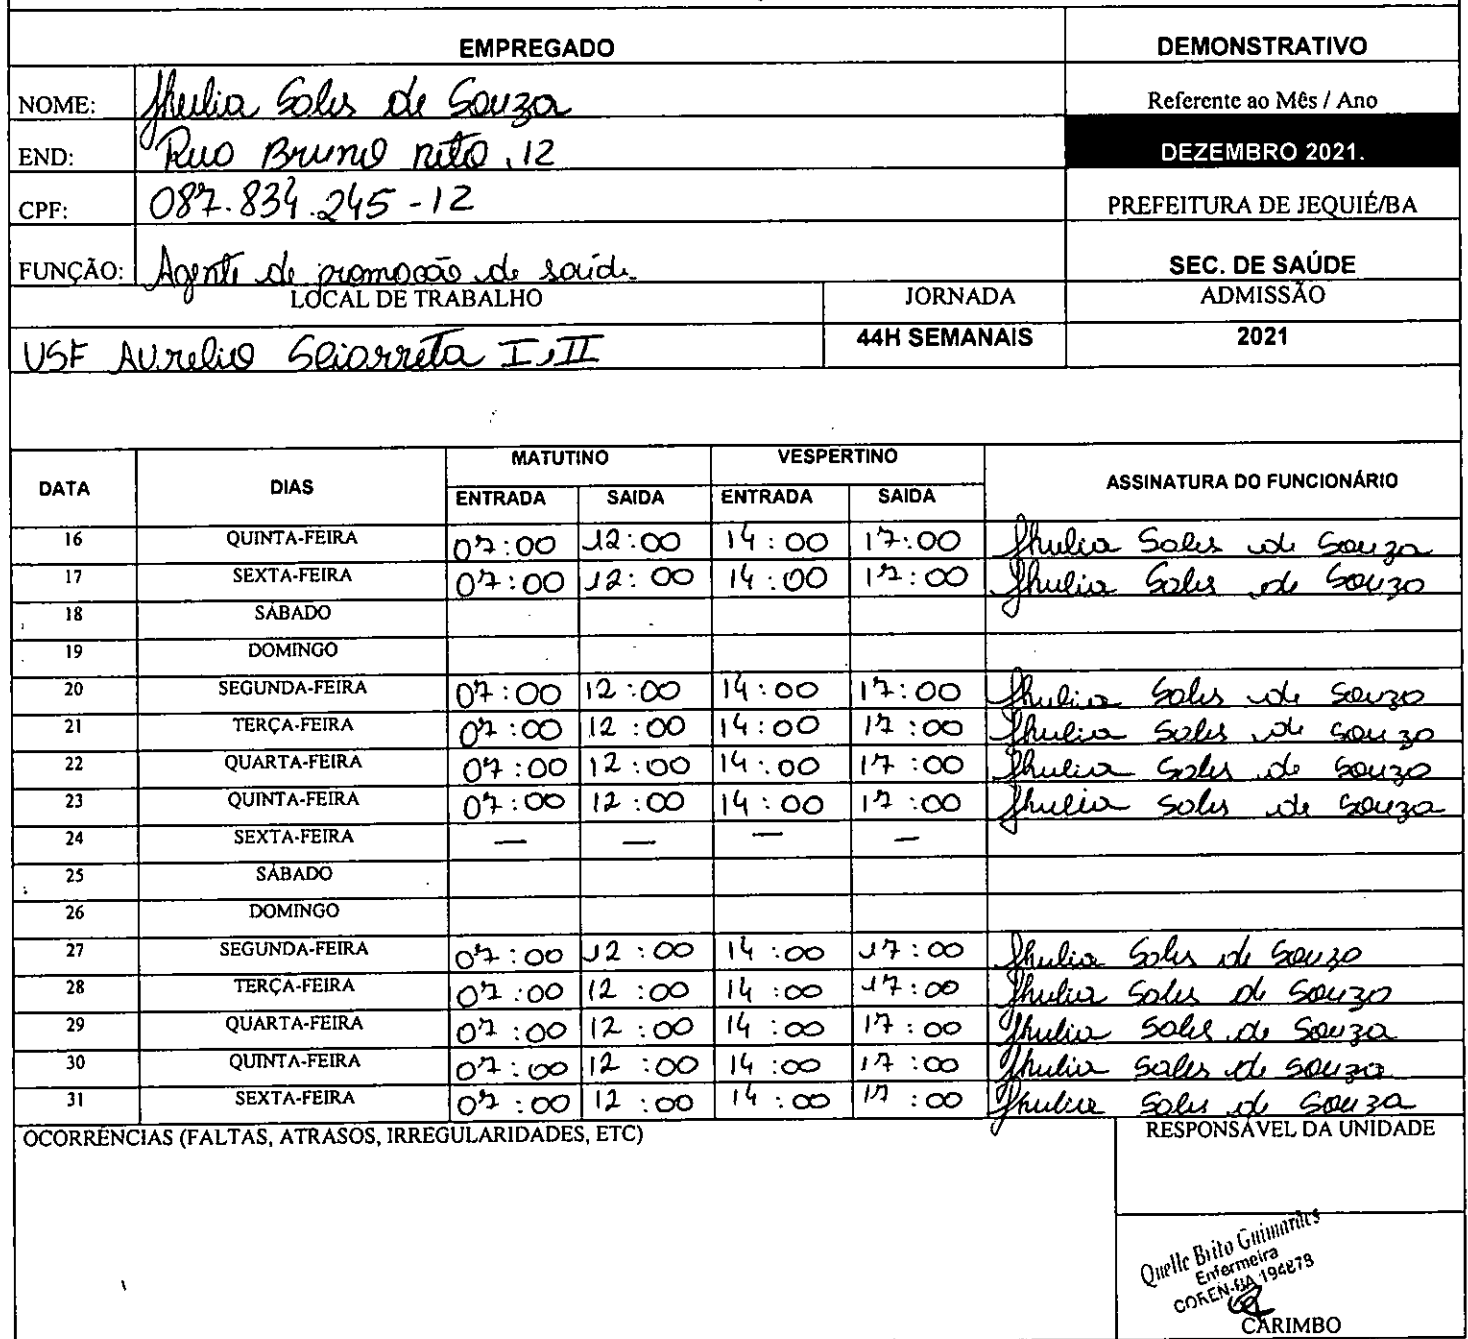 EMPREGADO DEMONSTRATIVO
NOME: Jhulia Sales de Souza Referente ao Mês / Ano
END: Rua Bruno neto, 12 DEZEMBRO 2021.
CPF: 087.834.245-12 PREFEITURA DE JEQUIÉ/BA
FUNÇÃO: Agente de promoção de saúde SEC. DE SAÚDE
LOCAL DE TRABALHO JORNADA ADMISSÃO
USF Aurelio Sciarreta I, II 44H SEMANAIS 2021
MATUTINO VESPERTINO
DATA DIAS ASSINATURA DO FUNCIONÁRIO
ENTRADA SAIDA ENTRADA SAIDA
16 QUINTA-FEIRA 07:00 12:00 14:00 17:00 Jhulia Sales de Souza
17 SEXTA-FEIRA 07:00 12:00 14:00 17:00 Jhulia Sales de Souza
18 SÁBADO
19 DOMINGO
20 SEGUNDA-FEIRA 07:00 12:00 14:00 17:00 Jhulia Sales de Souza
21 TERÇA-FEIRA 07:00 12:00 14:00 17:00 Jhulia Sales de Souza
22 QUARTA-FEIRA 07:00 12:00 14:00 17:00 Jhulia Sales de Souza
23 QUINTA-FEIRA 07:00 12:00 14:00 17:00 Jhulia Sales de Souza
24 SEXTA-FEIRA — — — —
25 SÁBADO
26 DOMINGO
27 SEGUNDA-FEIRA 07:00 12:00 14:00 17:00 Jhulia Sales de Souza
28 TERÇA-FEIRA 07:00 12:00 14:00 17:00 Jhulia Sales de Souza
29 QUARTA-FEIRA 07:00 12:00 14:00 17:00 Jhulia Sales de Souza
30 QUINTA-FEIRA 07:00 12:00 14:00 17:00 Jhulia Sales de Souza
31 SEXTA-FEIRA 07:00 12:00 14:00 17:00 Jhulia Sales de Souza
OCORRÊNCIAS (FALTAS, ATRASOS, IRREGULARIDADES, ETC) RESPONSÁVEL DA UNIDADE
Quelle Brito Guimarães
Enfermeira
COREN-BA 194878
CARIMBO